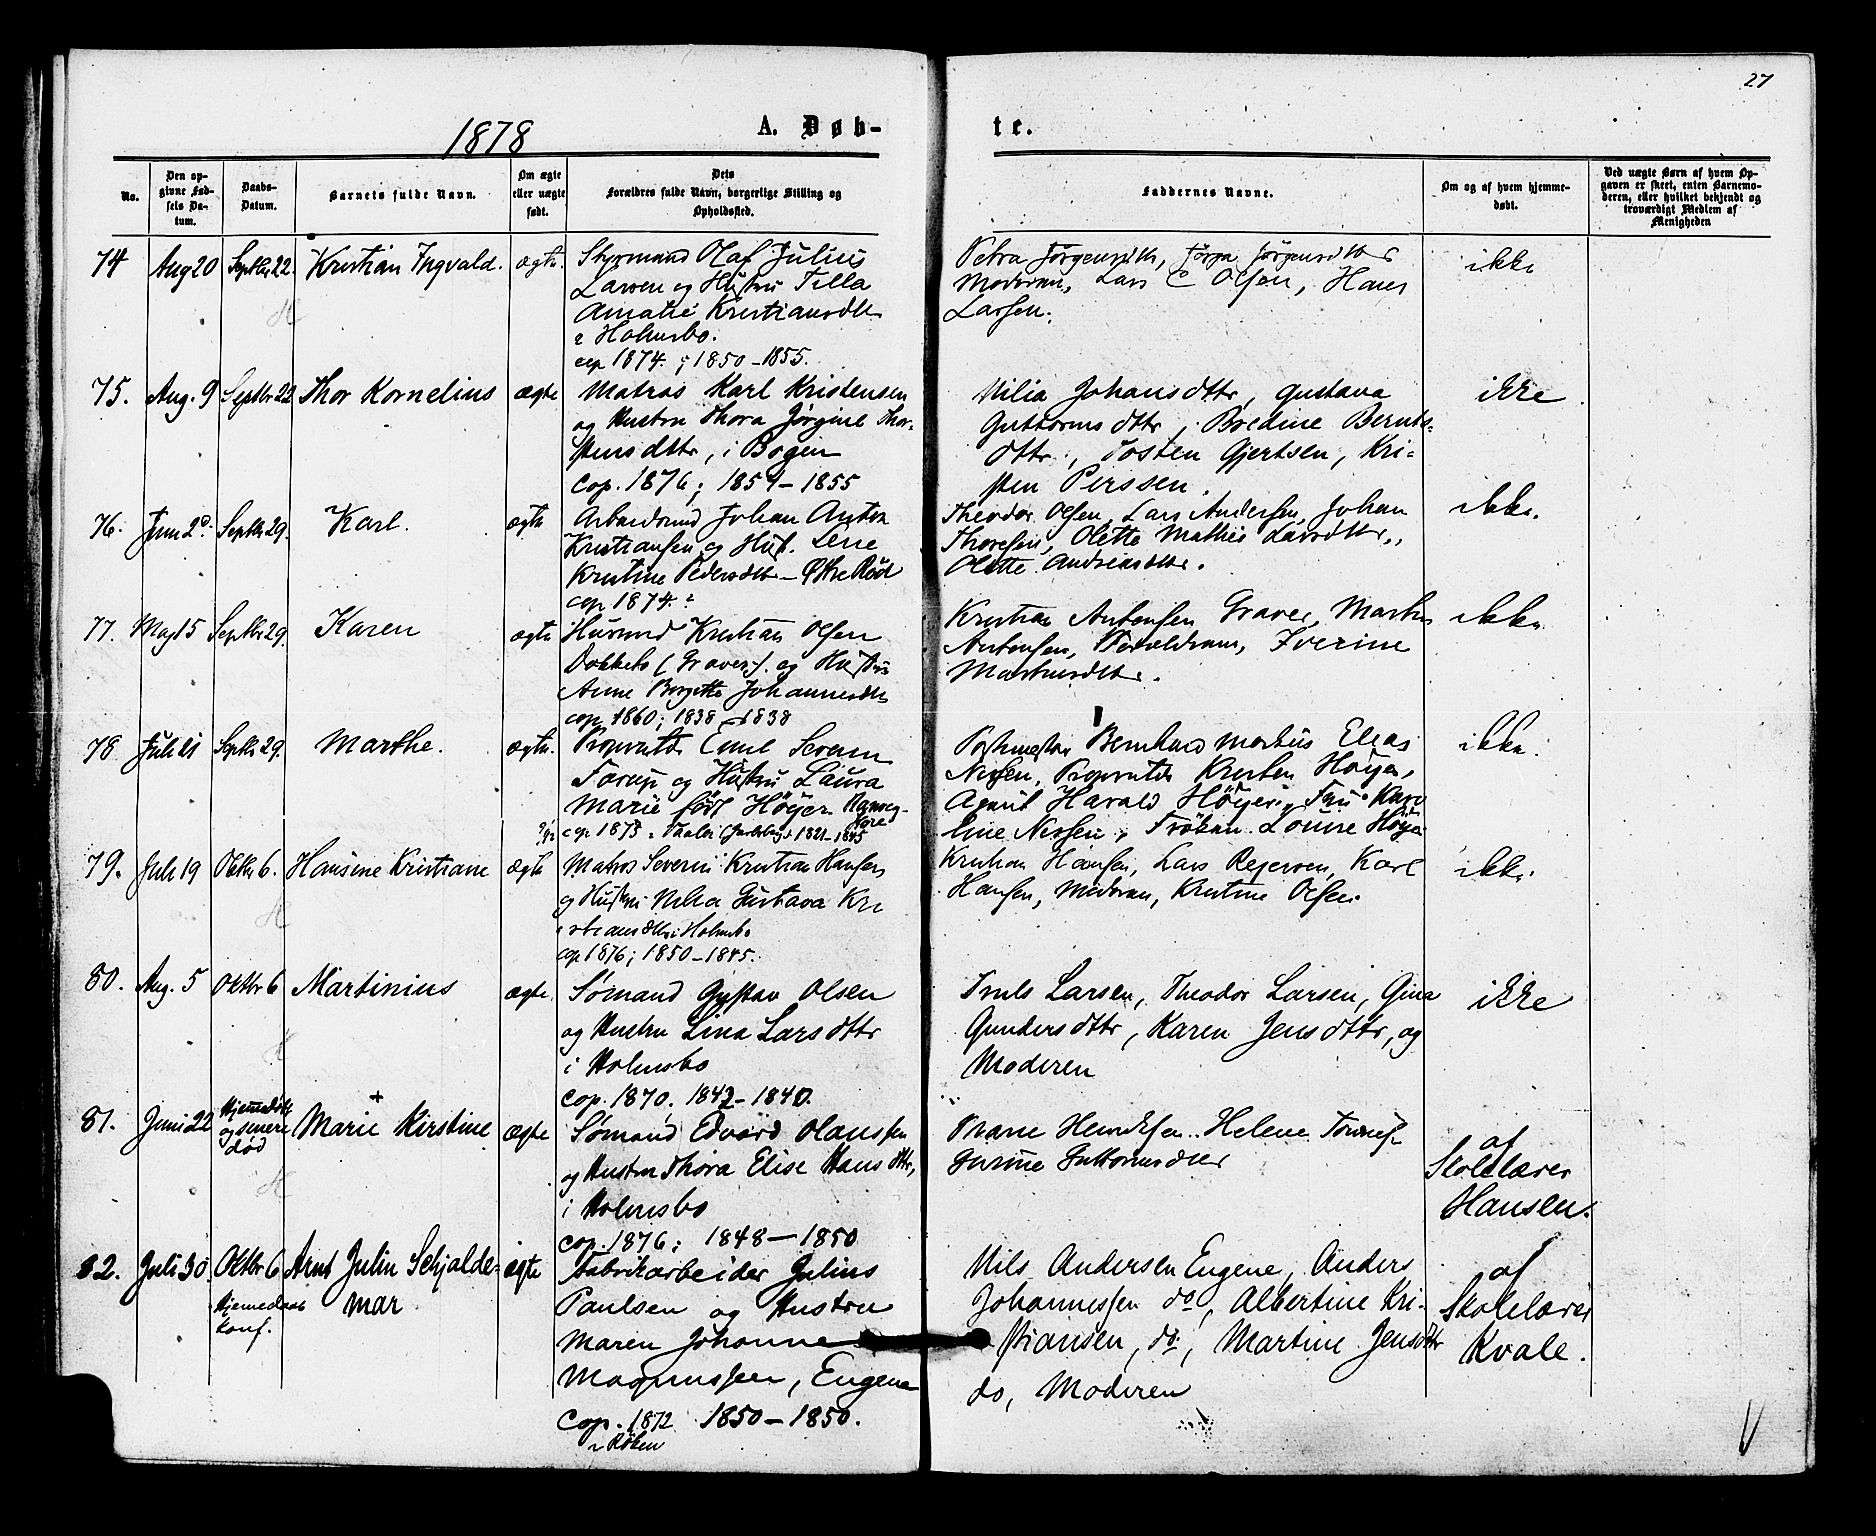 27
1878 A. Døb- te.
No.
Den op-
givne Fød-
sels Da-
tum.
Daabs-
Datum.
Barnets fulde Navn.
Om ægte
eller uægte
født.
Dets
Forældres fulde Navn, borgerlige Stilling og
Opholdssted.
Faddernes Navne.
Om og af hvem hjemme-
døbt.
Ved uægte Børn af hvem Op-
gaven er skeet, enten Barnemo-
deren, eller hvilket bekjendt og
troværdigt Medlem af
Menigheden
74 Aug 20 Septbr 22. Kristian Ingvald. ægte.
Styrmand Olaf Julius
Larsen og Hustru Tilla
Amalie Kristiansdtr
i Holmsbo.
cop 1874. ; 1850-1855.
Petra Jørgensdtr, Jørgensdtr
Moderen, Lars C Olsen, Hans
Larsen.
ikke
75. Aug. 9 Septbr 22 Thor Kornelius ægte
Matros Karl Kristensen
og Hustru Thora Jørgine Thor-
stensdttr, i Bogen
Cop. 1876; 1854-1855
Nilia Johansdttr, Gustava
Guttormsdttr, Bredine Bernts-
dttr, Tosten Gjertsen, Kri-
sten Perssen.
ikke
76. Juni 2d. Septbr 29. Karl. ægte
Johan Anton
Kristiansen og Hust. Lene
Kristine Pedersdtr - Rød
cop 1874.
Theodor Olsen, Lars Andersen, Johan
Thoresen, Olette Mathie Larsdtr.,
Olette Andreasdtr.
ikke.
77. Maj 15 Septbr 29. Karen ægte
Husmd Kristian Olsen
(Graver). og Hustru
Anne Birgitte Johannesdtr
cop 1860; 1838-1838
Kristian Antonsen Graver, Martin
Antonsen, Forældrene, Iverine
Martinsdtr.
ikke.
78 Juli 21 Septbr 29. Marthe. ægte.
Proprietær Emil Severin
Torup og Hustru Laura
Marie født Höyer
cop 1873 1821-1845
Postmester Bernhard Martius Elias
Nissen, Proprietær Kristen Höyer,
Agent Harald Höyer, Fru Karo
line Nissen, Frøken Louise Höyer
ikke.
79. Juli 19 Oktbr 6. Hansine Kristiane ægte
Matros Severin Kristian Hansen
og Hustru Nilia Gustava Kri
stiansdtr i Holmsbo
cop 1876; 1850-1845.
Kristian Hansen, Lars Rejersen, Karl
Hansen, Moderen, Kristine Olsen.
ikke.
80. Aug. 5 Oktbr 6 Martinius ægte.
Sømand Gustav Olsen
og Hustru Lina Larsdttr
i Holmsbo
Cop. 1870. 1842-1840.
Truls Larsen, Theodor Larsen, Gina
Gundersdttr, Karen Jensdttr, og
Moderen
ikke
81. Juni 22 Hjemmedøbt
og senere
død
+
Marie Kirstine ægte
Sømand Edvard Olaussen
og Hustru Thora Elise Hansdttr,
i Holmsbo
cop. 1876; 1848-1850
Marie Hendriksen. Helene
Guttormsdtr
af
Skolelærer
Hansen.
82. Juli 30. Oktbr 6 Arnt Julin Schjalde-
mar ægte
Hjemedaab
konf.
Fabrikarbeider Julius
Paulsen og Hustru
Maren Johanne
Magnussen, Engene
Cop. 1872 1850-1850.
i Røken
Nils Andersen Engene, Anders
Johannessen do, Albertine Kri-
stiansen, do, Martine Jensdttr
do, Moderen
af
Skolelærer
Kvale.